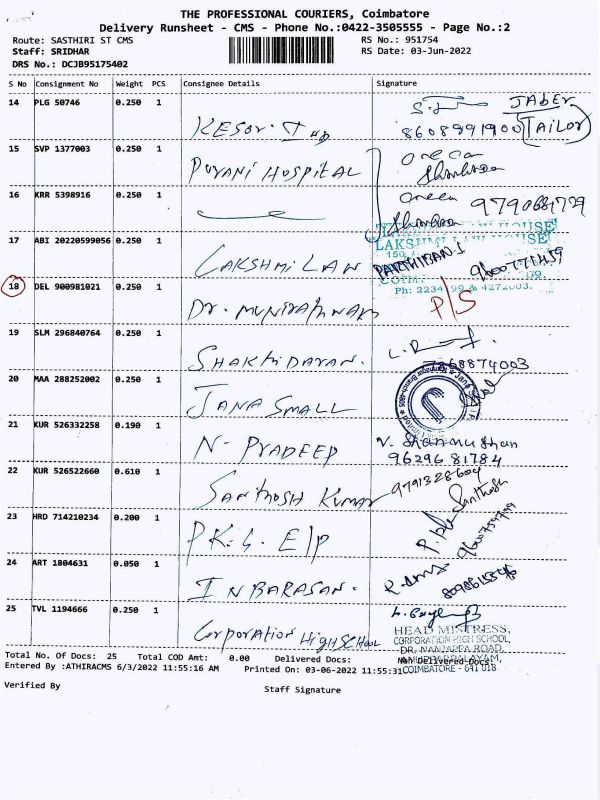 THE PROFESSIONAL COURIERS, Coimbatore
Delivery Runsheet - CMS - Phone No.:0422-3505555 - Page No.:2
Route: SASTHIRI ST CMS
RS No.: 951754
Staff: SRIDHAR
RS Date: 03-Jun-2022
DRS No.: DCJB95175402
S No Consignment No Weight PCS Consignee Details Signature
14 PLG 50746 0.250 1
JABER
KESOR. 8608991900 TAILOR
15 SVP 1377003 0.250 1
PURANI HOSPITAL
16 KRR 5398916 0.250 1
17 ABI 20220599056 0.250 1
LAKSHMI LAW HOUSE
LAKSHMI LAW
18 DEL 900981021 0.250 1
Ph: 2234 99 & 4272003.
DR. MUNIRATHNAM P/S
19 SLM 296840764 0.250 1
SHAKTHIDARAN.
7868874003
20 MAA 288252002 0.250 1
JANA SMALL
21 KUR 526332258 0.190 1
N- PRADEEP
V. Shanmughan
96296 81784
22 KUR 526522660 0.610 1
SANTHOSH KUMAR 9791328604
Santhosh
23 HRD 714210234 0.200 1
P.K.S. E/P
24 ART 1804631 0.050 1
INBARASAN.
25 TVL 1194666 0.250 1
Corporation HIGH SCHOOL
HEAD MISTRESS,
CORPORATION HIGH SCHOOL,
DR. NANJAPPA ROAD,
COIMBATORE - 641 018
Total No. Of Docs: 25 Total COD Amt: 0.00 Delivered Docs: Non Delivered Docs:
Entered By :ATHIRACMS 6/3/2022 11:55:16 AM Printed On: 03-06-2022 11:55:31
Verified By
Staff Signature